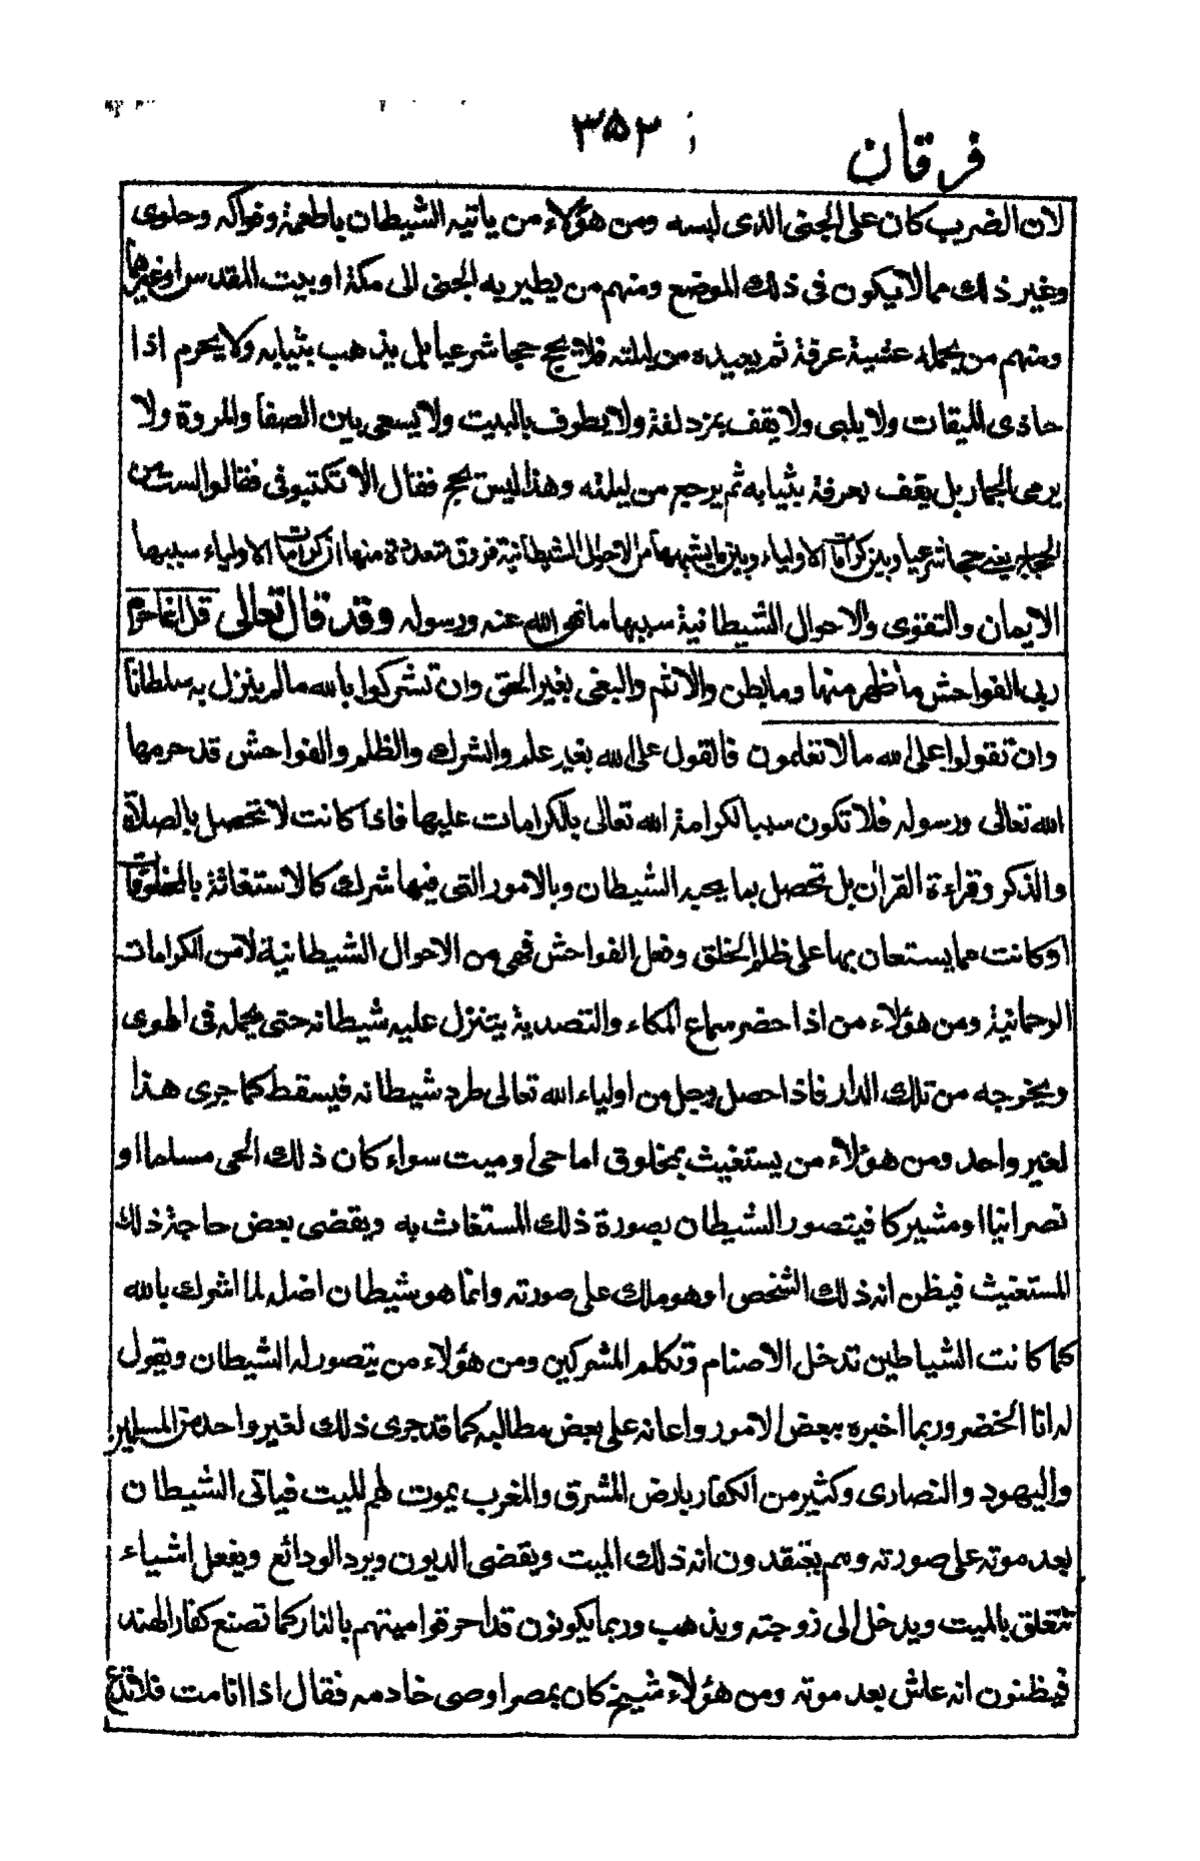 فرقان
۳۵۲
لان الضرب كان على الجنى الذى لبسه ومن هؤلاء من ياتيه الشيطان باطعمة وفواكه وحلوى
وغير ذلك مما لا يكون فى ذلك الموضع ومنهم من يطير به الجنى الى مكة او بيت المقدس او غيرهما
ومنهم من يحمله عشية عرفة ثم يعيده من ليلته فلا يحج حجا شرعيا بل يذهب بثيابه ولا يحرم اذا
حاذى الميقات ولا يلبى ولا يقف بمزدلفة ولا يطوف بالبيت ولا يسعى بين الصفا والمروة ولا
يرمى الجمار بل يقف بعرفة بثيابه ثم يرجع من ليلته وهذا ليس بحج فقال الا تكتبونى فقالوا لست من
الحجاج يعنى حجا شرعيا وبين كرامات الاولياء وبين ما يشبهها من الاحوال الشيطانية فروق متعددة منها ان كرامات الاولياء سببها
الايمان والتقوى والاحوال الشيطانية سببها ما نهى الله عنه ورسوله وقد قال تعالى قل انما حرم
ربى الفواحش ما ظهر منها وما بطن والاثم والبغى بغير الحق وان تشركوا بالله مالم ينزل به سلطانا
وان تقولوا على الله مالا تعلمون فالقول على الله بغير علم والشرك والظلم والفواحش قد حرمها
الله تعالى ورسوله فلا تكون سببا لكرامة الله تعالى بالكرامات عليها فاذا كانت لا تحصل بالصلاة
والذكر وقراءة القرآن بل تحصل بما يحبه الشيطان وبالامور التى فيها شرك كالاستغاثة بالمخلوقات
او كانت مما يستعان بها على ظلم الخلق وفعل الفواحش فهى من الاحوال الشيطانية لا من الكرامات
الرحمانية ومن هؤلاء من اذا حضر سماع المكاء والتصدية يتنزل عليه شيطانه حتى يحمله فى الهوى
ويخرجه من تلك الدار فاذا حصل رجل من اولياء الله تعالى طرد شيطانه فيسقط كما جرى هذا
لغير واحد ومن هؤلاء من يستغيث بمخلوق اما حى او ميت سواء كان ذلك الحى مسلما او
نصرانيا او مشركا فيتصور الشيطان بصورة ذلك المستغاث به ويقضى بعض حاجة ذلك
المستغيث فيظن انه ذلك الشخص او هو ملك على صورته وانما هو شيطان اضله لما اشرك بالله
كما كانت الشياطين تدخل الاصنام وتكلم المشركين ومن هؤلاء من يتصور له الشيطان ويقول
له انا الخضر وربما اخبره ببعض الامور واعانه على بعض مطالبه كما قد جرى ذلك لغير واحد من المسلمين
واليهود والنصارى وكثير من الكفار بارض المشرق والمغرب يموت لهم الميت فياتى الشيطان
بعد موته على صورته وهم يعتقدون انه ذلك الميت ويقضى الديون ويرد الودائع ويفعل اشياء
تتعلق بالميت ويدخل الى زوجته ويذهب وربما يكونون قد احرقوا ميتهم بالنار كما تصنع كفار الهند
فيظنون انه عاش بعد موته ومن هؤلاء شيخ كان بمصر اوصى خادمه فقال اذا انا مت فلا تدع